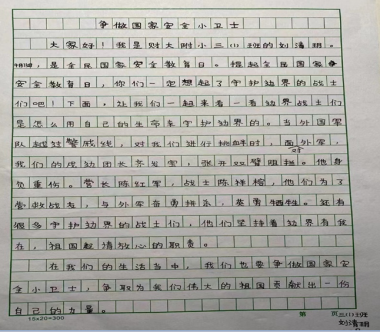 争做国家安全小卫士
大家好！我是财大附小三(1)班的刘清玥。
4月15日，是全民国家安全教育日。提起全民国家
安全教育日，你们一定想起了守护边界的战士
们吧！下面，让我们一起来看一看边界战士们
是怎么用自己的生命来守护边界的。当外国军
队越过警戒线，对我们进行挑衅时，面对外军，
我们的戍边团长祁发宝，张开双臂阻挡。他身
负重伤。营长陈红军，战士陈祥榕，他们为了
营救战友，与外军奋勇拼杀，英勇牺牲。还有
很多守护边界的战士们，他们坚持着边界有我
在，祖国请放心的职责。
在我们的生活当中，我们也要争做国家安
全小卫士，争取为我们伟大的祖国贡献出一份
自己的力量。
15×20=300
第 页
三(1)班
刘清玥